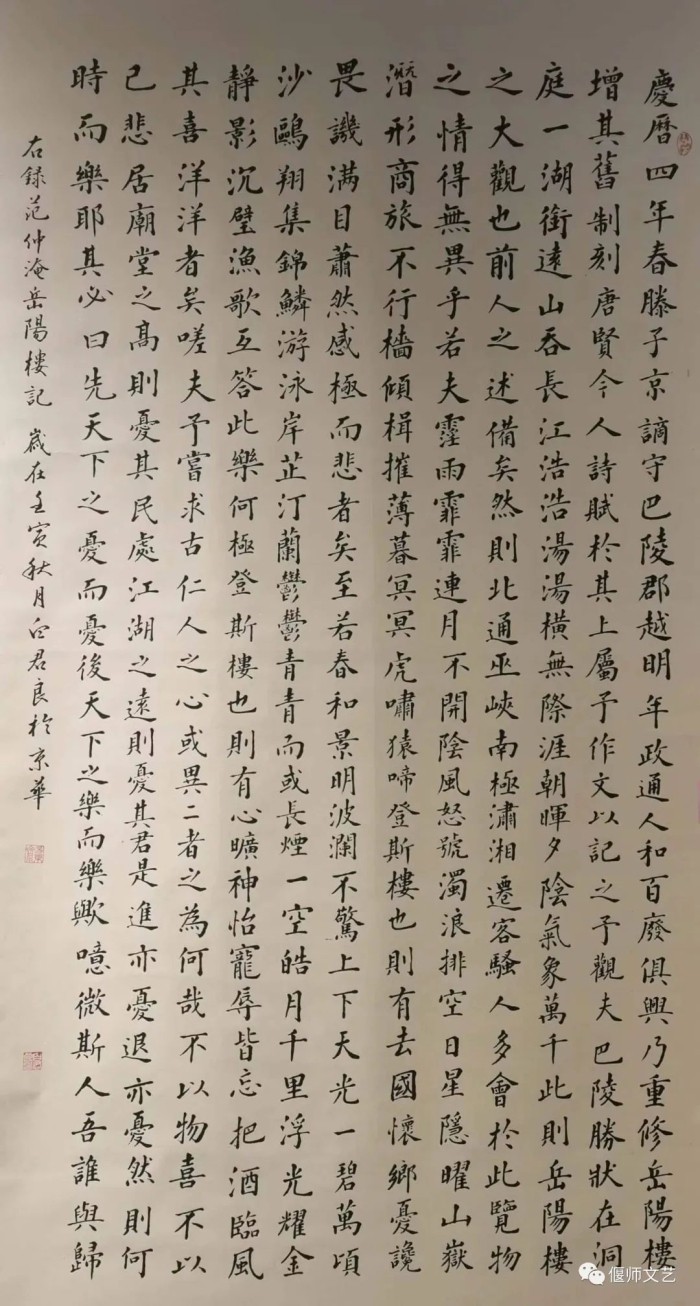 慶曆四年春滕子京謫守巴陵郡越明年政通人和百廢俱興乃重修岳陽樓
增其舊制刻唐賢今人詩賦於其上屬予作文以記之予觀夫巴陵勝狀在洞
庭一湖銜遠山吞長江浩浩湯湯橫無際涯朝暉夕陰氣象萬千此則岳陽樓
之大觀也前人之述備矣然則北通巫峽南極瀟湘遷客騷人多會於此覽物
之情得無異乎若夫霪雨霏霏連月不開陰風怒號濁浪排空日星隱曜山嶽
潛形商旅不行檣傾楫摧薄暮冥冥虎嘯猿啼登斯樓也則有去國懷鄉憂讒
畏譏滿目蕭然感極而悲者矣至若春和景明波瀾不驚上下天光一碧萬頃
沙鷗翔集錦鱗游泳岸芷汀蘭鬱鬱青青而或長煙一空皓月千里浮光耀金
靜影沉璧漁歌互答此樂何極登斯樓也則有心曠神怡寵辱皆忘把酒臨風
其喜洋洋者矣嗟夫予嘗求古仁人之心或異二者之為何哉不以物喜不以
己悲居廟堂之高則憂其民處江湖之遠則憂其君是進亦憂退亦憂然則何
時而樂耶其必曰先天下之憂而憂後天下之樂而樂歟噫微斯人吾誰與歸
右錄范仲淹岳陽樓記 歲在壬寅秋月白君良於京華
偃师文艺